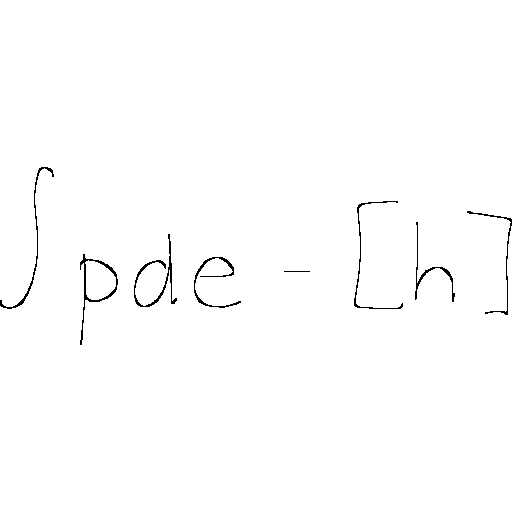 ∫ p d e - [ h ]